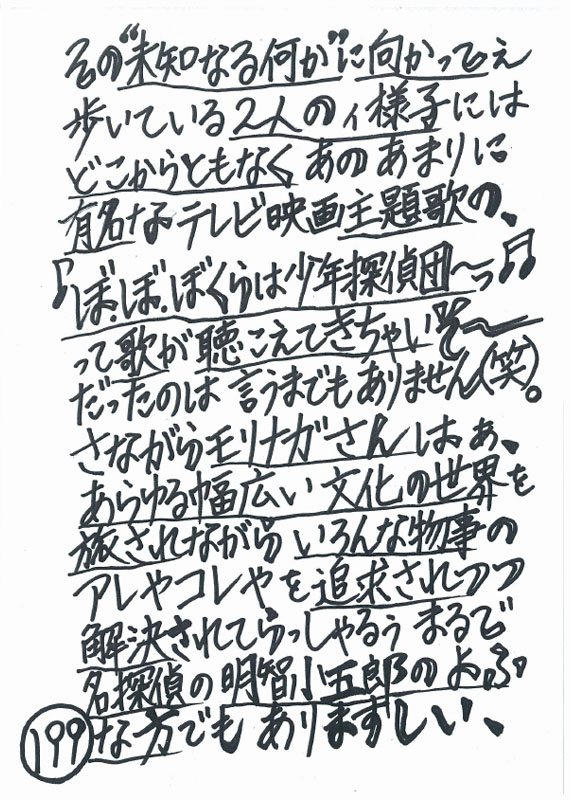 その“未知なる何か”に向かってぇ
歩いている2人のィ様子には
どこからともなく あの あまりに
有名なテレビ映画主題歌の、
♪ぼ.ぼ.ぼくらは少年探偵団〜っ♫
って歌が聴こえてきちゃいそ〜
だったのは言うまでもありません(笑)。
さながらモリナガさんはぁ、
あらゆる幅広い文化の世界を
旅されながら いろんな物事の
アレやコレやを追求されつつ
解決されてらっしゃるぅ まるで
名探偵の明智小五郎のよぷ
な方でも ありますしい、
199